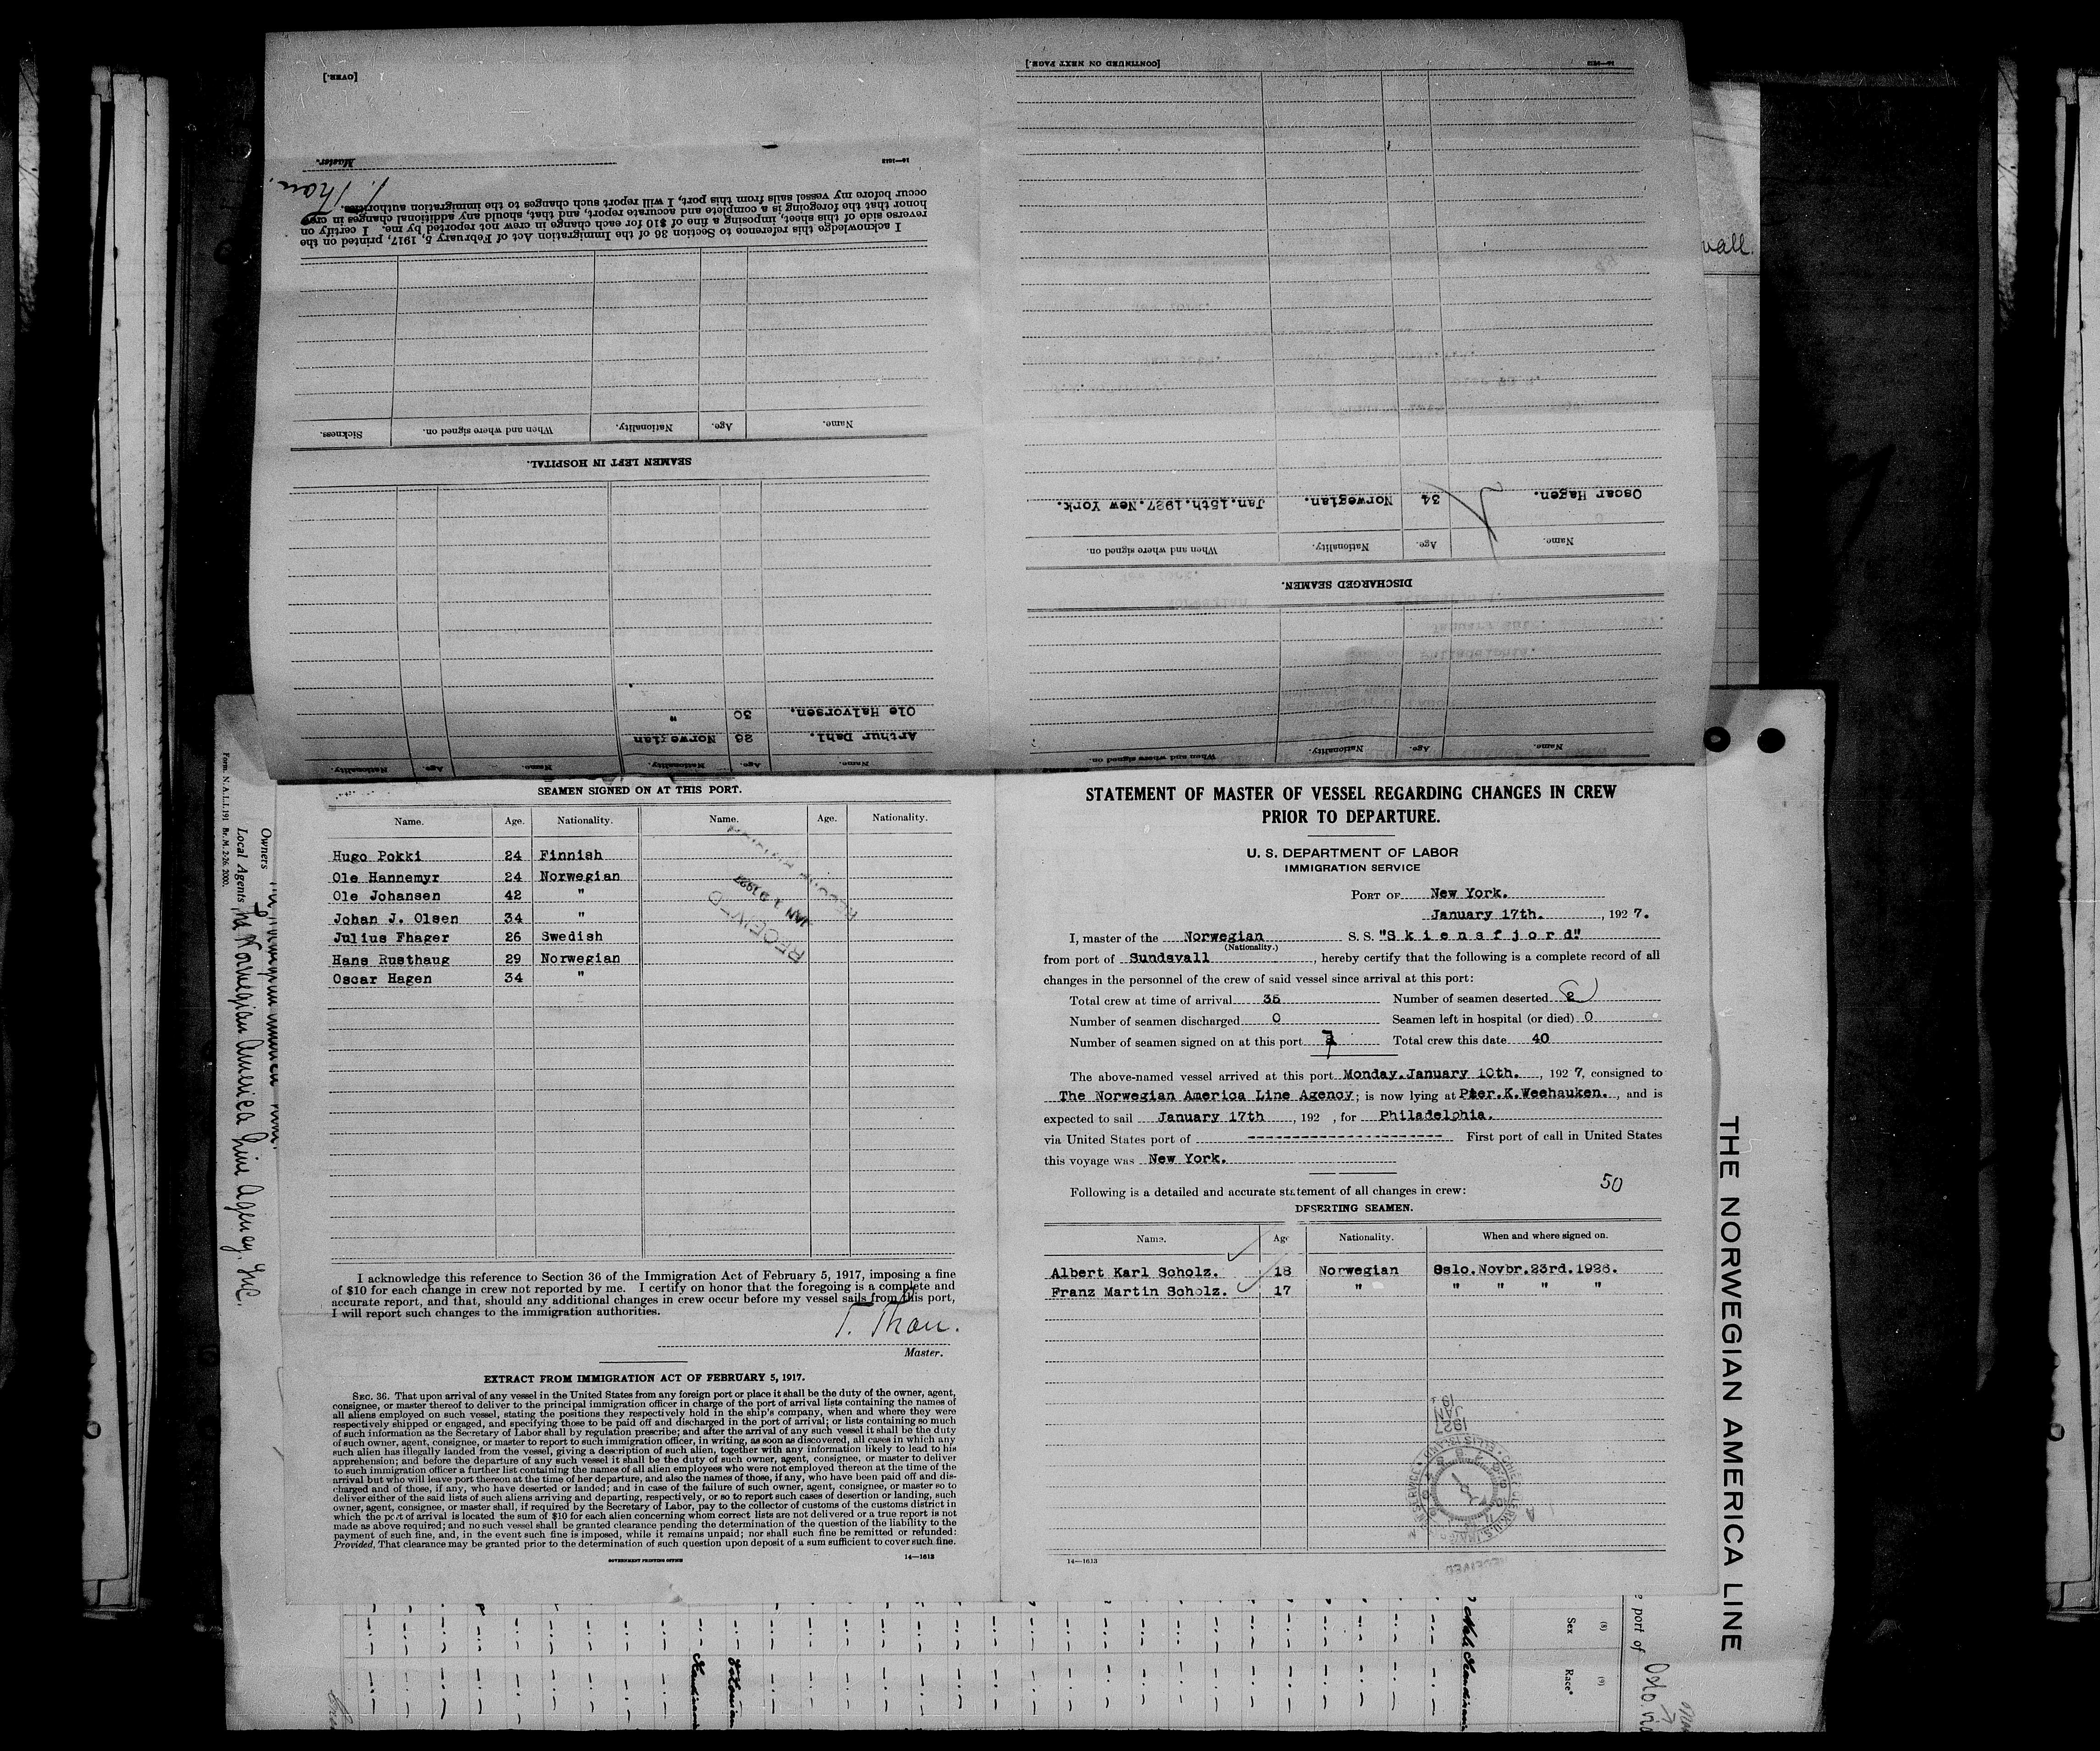 [OVER.]
Master.
14—1613
T. Thon.
I acknowledge this reference to Section 36 of the Immigration Act of February 5, 1917, printed on the
reverse side of this sheet, imposing a fine of $10 for each change in crew not reported by me. I certify on
honor that the foregoing is a complete and accurate report, and that, should any additional changes in crew
occur before my vessel sails from this port, I will report such changes to the immigration authorities.
SEAMEN LEFT IN HOSPITAL.
Name. Age. Nationality. When and where signed on. Sickness.
Name. Age. Nationality. Name. Age. Nationality.
Arthur Dahl. 26 Norwegian
Ole Halvorsen. 30 "
[CONTINUED ON NEXT PAGE.]
Name. Age. Nationality. When and where signed on.
DISCHARGED SEAMEN.
Name. Age. Nationality. When and where signed on.
Oscar Hagen. 34 Norwegian. Jan.15th.1927.New York.
vall.
SEAMEN SIGNED ON AT THIS PORT.
Name. Age. Nationality. Name. Age. Nationality.
Hugo Pokki 24 Finnish
Ole Hannemyr 24 Norwegian
Ole Johansen 42 "
Johan J. Olsen 34 "
Julius Fhager 26 Swedish
Hans Rusthaug 29 Norwegian
Oscar Hagen 34 "
RECEIVED
JAN 1927
I acknowledge this reference to Section 36 of the Immigration Act of February 5, 1917, imposing a fine
of $10 for each change in crew not reported by me. I certify on honor that the foregoing is a complete and
accurate report, and that, should any additional changes in crew occur before my vessel sails from this port,
I will report such changes to the immigration authorities.
T. Thon.
Master.
EXTRACT FROM IMMIGRATION ACT OF FEBRUARY 5, 1917.
SEC. 36. That upon arrival of any vessel in the United States from any foreign port or place it shall be the duty of the owner, agent,
consignee, or master thereof to deliver to the principal immigration officer in charge of the port of arrival lists containing the names of
all aliens employed on such vessel, stating the positions they respectively hold in the ship's company, when and where they were
respectively shipped or engaged, and specifying those to be paid off and discharged in the port of arrival; or lists containing so much
of such information as the Secretary of Labor shall by regulation prescribe; and after the arrival of any such vessel it shall be the duty
of such owner, agent, consignee, or master to report to such immigration officer, in writing, as soon as discovered, all cases in which any
such alien has illegally landed from the vessel, giving a description of such alien, together with any information likely to lead to his
apprehension; and before the departure of any such vessel it shall be the duty of such owner, agent, consignee, or master to deliver
to such immigration officer a further list containing the names of all alien employees who were not employed thereon at the time of the
arrival but who will leave port thereon at the time of her departure, and also the names of those, if any, who have been paid off and dis-
charged and of those, if any, who have deserted or landed; and in case of the failure of such owner, agent, consignee, or master so to
deliver either of the said lists of such aliens arriving and departing, respectively, or so to report such cases of desertion or landing, such
owner, agent, consignee, or master shall, if required by the Secretary of Labor, pay to the collector of customs of the customs district in
which the port of arrival is located the sum of $10 for each alien concerning whom correct lists are not delivered or a true report is not
made as above required; and no such vessel shall be granted clearance pending the determination of the question of the liability to the
payment of such fine, and, in the event such fine is imposed, while it remains unpaid; nor shall such fine be remitted or refunded:
Provided, That clearance may be granted prior to the determination of such question upon deposit of a sum sufficient to cover such fine.
GOVERNMENT PRINTING OFFICE
14—1613
STATEMENT OF MASTER OF VESSEL REGARDING CHANGES IN CREW
PRIOR TO DEPARTURE.
U. S. DEPARTMENT OF LABOR
IMMIGRATION SERVICE
PORT OF New York.
January 17th. , 1927.
I, master of the Norwegian S. S. "Skiensfjord"
(Nationality.)
from port of Sundsvall , hereby certify that the following is a complete record of all
changes in the personnel of the crew of said vessel since arrival at this port:
Total crew at time of arrival 35 Number of seamen deserted 2
Number of seamen discharged 0 Seamen left in hospital (or died) 0
Number of seamen signed on at this port 7 Total crew this date 40
The above-named vessel arrived at this port Monday.January 10th. , 1927, consigned to
The Norwegian America Line Agency; is now lying at Pier.K.Weehauken. , and is
expected to sail January 17th , 192 , for Philadelphia.
via United States port of -------------------- First port of call in United States
this voyage was New York.
50
Following is a detailed and accurate statement of all changes in crew:
DESERTING SEAMEN.
Name. Age Nationality. When and where signed on.
Albert Karl Scholz. 18 Norwegian Oslo.Novbr.23rd.1926.
Franz Martin Scholz. 17 " " " " "
JAN
1927
RECEIVED
14—1613
THE NORWEGIAN AMERICA LINE
Form. N.A.L.I.191 Br.M. 2-26. 2000.
Owners
Local Agents The Norwegian America Line Agency. Inc.
(8) (9)
Sex Race*
port of Oslo. via